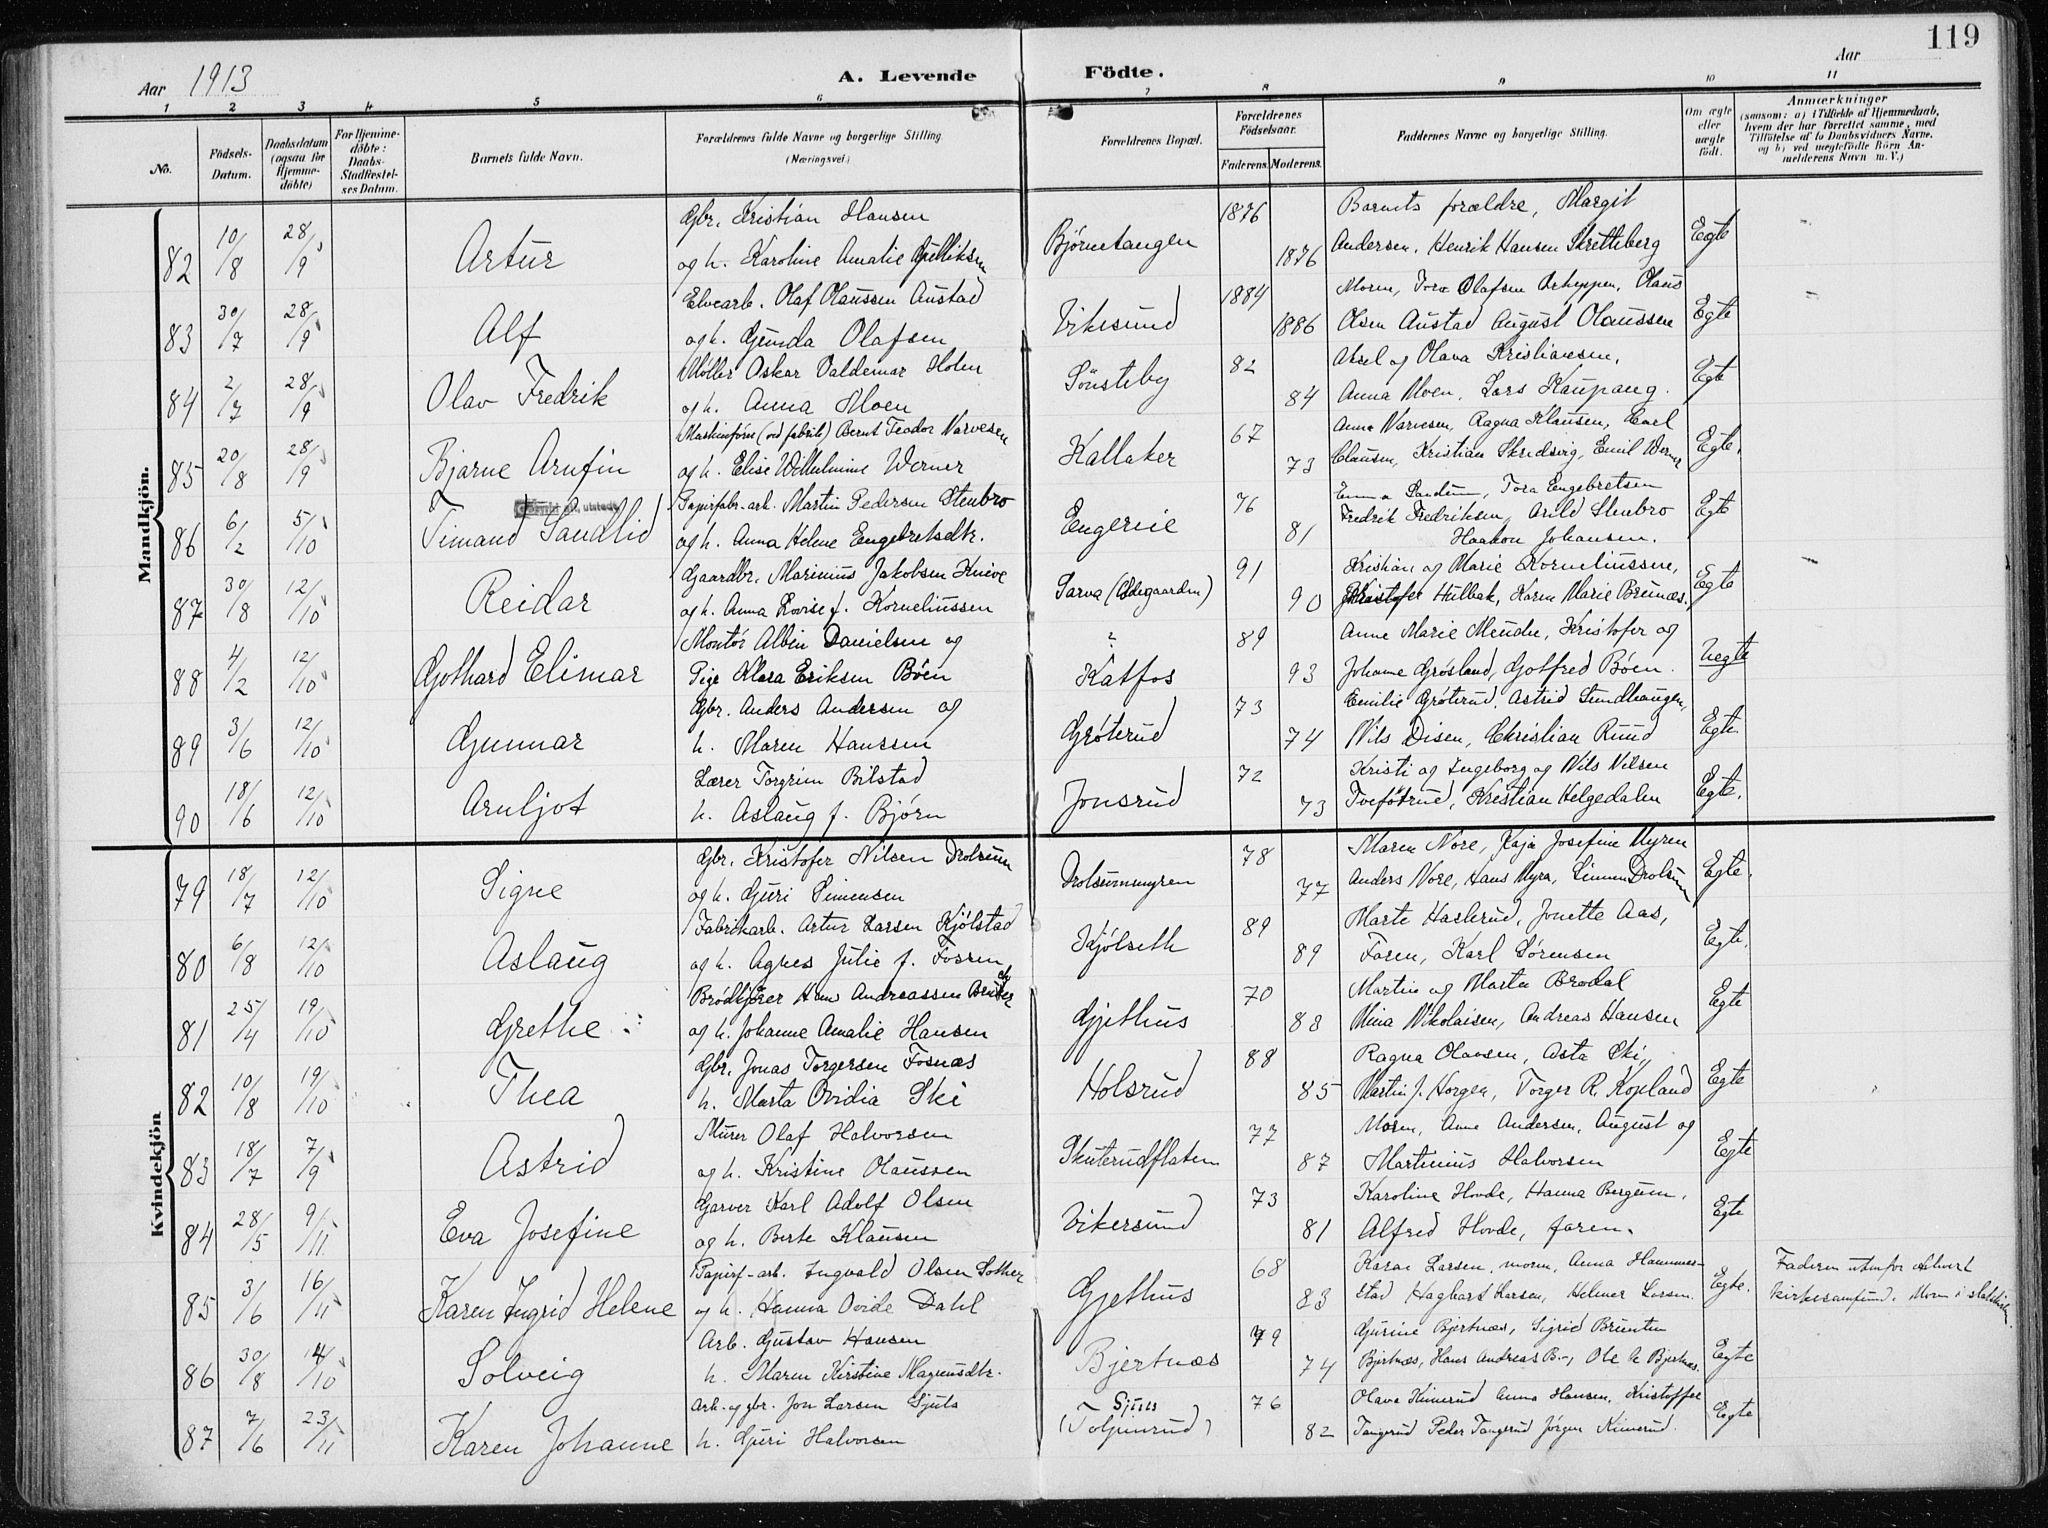 119
Aar 1913
A. Levende Födte.
Aar
1 2 3 4 5 6 7 8 9 10 11
No.
Födsels-Datum.
Daabsdatum (ogsaa for Hjemmedöbte)
For Hjemmedöbte: Daabs-Stadfæstelses Datum.
Barnets fulde Navn.
Forældrenes fulde Navne og borgerlige Stilling. (Næringsvei)
Forældrenes Bopæl.
Forældrenes Födselsaar.
Faderens. Moderens.
Faddernes Navne og borgerlige Stilling.
Om ægte eller uægte födt.
Anmærkninger (saasom: a) i Tilfælde af Hjemmedaab, hvem der har forrettet samme, med Tilföielse af to Daabsvidners Navne, og b) ved uægtefödte Börn Anmelderens Navn m. V.)
Mandkjön.
82 10/8 28/9 Artur Gbr. Kristian Hansen Bjørnetangen 1876 Barnets forældre, Margit Egte
og h. Karoline Amalie Gulliksen 1876 Andersen, Henrik Hansen Skretteberg
83 30/7 28/9 Alf Elvearb. Olaf Olaussen Austad Vikesund 1884 Moren, Tora Olafsen Olaus Egte
og h. Gunda Olafsen 1886 Olsen Austad August Olaussen
84 2/7 28/9 Olav Fredrik Møller Oskar Valdemar Holen Sönsteby 82 Aksel og Olava Kristiansen, Egte
og h. Anna Moen 84 Anna Moen, Lars Kaupang.
85 20/8 28/9 Bjarne Arnfin Maskinfører (ved fabrik) Bernt Teodor Narvesen Kallaker 67 Anna Narvesen, Ragna Klausen, Carl Egte.
og h. Elise Wilhelmine Werner 73 Clausen, Kristian Skredsvig, Emil Werner
86 6/2 5/10 Timand Sandlid Papirfabr-arb. Martin Pedersen Stenbro Engerie 76 Emma Sandum, Tora Engebretsen Egte
og h. Anna Helene Engebretsdtr. 81 Fredrik Fredriksen, Arild Stenbro
Haakon Johansen.
87 30/8 12/10 Reidar Gaardbr. Marinius Jakobsen Kneve Sarva (Ødegaarden) 91 Kristian og Marie Korneliussen, Egte
og h. Anna Lovise f. Korneliussen 90 Kristofer Hulbak, Karen Marie Breunæs.
88 4/2 12/10 Gothard Elimar Montör Albin Danielsen og ? 89 Anne Marie Mendu, Kristofer og Uegte
Pige Klara Eriksen Böen Katfos 93 Johanne Grøsland, Gotfred Bøen.
89 3/6 12/10 Gunnar Gbr. Anders Andersen og Grøterud 73 Emilie Grøterud, Astrid Sundhaugen, Egte.
h. Maren Hanssen 74 Nils Disen, Christian Ruud
90 18/6 12/10 Arnljot Lærer Torgrim Bilstad Jonsrud 72 Kristi og Ingeborg og Nils Nilsen Egte.
h. Aslaug f. Bjørn 73 Tveføtrud, Kristian Helgedalen
Kvindekjön
79 18/7 12/10 Signe Gbr. Kristofer Nilsen Drolsum Drolsummyren 78 Maren Nore, Kaja Josefine Myren Egte.
og h. Guri Simensen 77 Anders Nore, Hans Myra, Simen Drolsum
80 6/8 12/10 Aslaug Fabrikarb. Artur Larsen Kjölstad Kjölseth 89 Marte Haslerud, Jonette Aas, Egte.
og h. Agnes Julie f. Fossen 89 Faren, Karl Sørensen
81 25/4 19/10 Grethe Brödkjører Hans Andreassen Gjethus 70 Martin og Marta Brodal Egte
og h. Johanne Amalie Hansen 83 Mina Nikolaisen, Andreas Hansen
82 10/8 19/10 Thea Gbr. Jonas Torgersen Fosnæs Holsrud 88 Ragna Olausen, Asta Ski, Egte
h. Marta Ovidia Ski 85 Martin J. Horgen, Torger R. Kopland
83 18/7 7/9 Astrid Murer Olaf Halvorsen Skuterudflaten 77 Moren, Anne Andersen, August og Egte
og h. Kristine Olaussen 87 Martinius Halvorsen
84 28/5 9/11 Eva Josefine Garver Karl Adolf Olsen Vikersund 73 Karoline Hovde, Hanna Bergum, Egte
og h. Berte Klausen 81 Alfred Hovde, faren.
85 3/6 16/11 Karen Ingrid Helene Papirf-arb. Ingvald Olsen Sother Gjethus 68 Karae Larsen, moren, Anna Hammer- Egte. Faderen utenfor ethvert
og h. Hanna Ovide Dahl 83 stad Hagbart Larsen, Helmer Larsen. kirkesamfund. Moren i statskirken
86 30/8 14/10 Solveig Arb. Gustav Hansen Bjertnæs 79 Gurine Bjertnæs, Sigrid Brunten Egte
h. Maren Kirstine Magnusdtr. 74 Bjertnæs, Hans Andreas B.-, Ole A. Bjertnæs.
87 7/6 23/11 Karen Johanne Arb. og gbr. Jon Larsen Sjuls Sjuls 76 Olava Kimerud Anna Hansen, Kristoffer Egte
h. Guri Halvorsen (Toljenrud) 82 Tangerud Peder Tangerud Jørgen Kimerud.